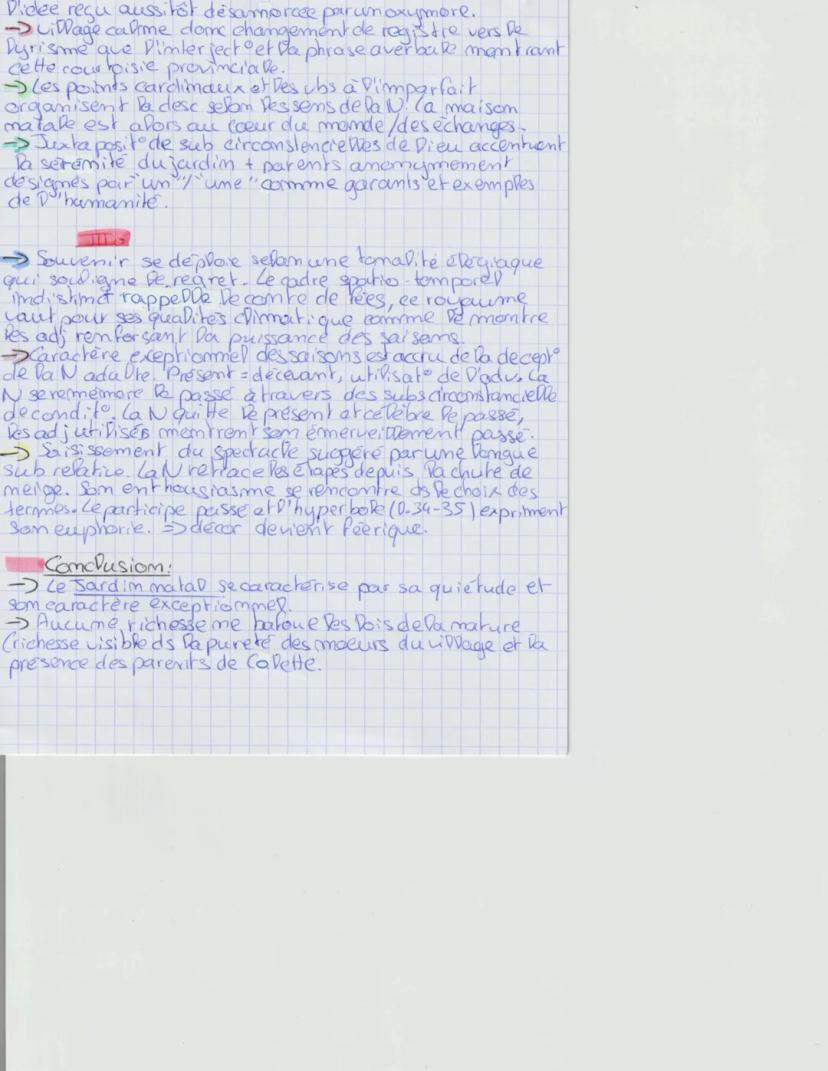 l'idée reçu aussitôt désamorcée par un oxymore.
→ Village calme donc changement de registre vers le
lyrisme que l'interject° et la phrase averbale montrant
cette courtoisie provinciale.
→ Les points cardinaux et les vbs à l'imparfait
organisent la desc selon les sens de la N. La maison
natale est alors au coeur du monde/des échanges.
→ Juxtaposit° de sub circonstencielles de lieu accentuent
la sérénité du jardin + parents anonymement
désignés par "un"/"une" comme garants et exemples
de l'humanité.
III.
→ Souvenir se déploie selon une tonalité élégiaque
qui souligne le regret. Le cadre spatio-temporel
indistinct rappelle le conte de fées, ce royaume
vaut pour ses qualités climatique comme le montre
les adj renforsant la puissance des saisons.
→ Caractère exceptionnel des saisons est accru de la decept°
de la N adulte. Présent = décevant, utilisat° de l'adv. La
N se remémore le passé à travers des subs circonstancielle
de condit°. La N quitte le présent et célèbre le passé,
les adj utilisés montrent son émerveillement passé.
→ Saisissement du spectacle suggéré par une longue
sub relative. La N retrace les étapes depuis la chute de
neige. Son enthousiasme se rencontre ds le choix des
termes. Le participe passé et l'hyperbole (l.34-35) expriment
son euphorie. => décor devient féerique.
Conclusion:
→ Le Jardin natal se caractérise par sa quiétude et
son caractère exceptionnel.
→ Aucune richesse ne bafoue les lois de la nature
(richesse visible ds la pureté des moeurs du village et la
présence des parents de Colette.